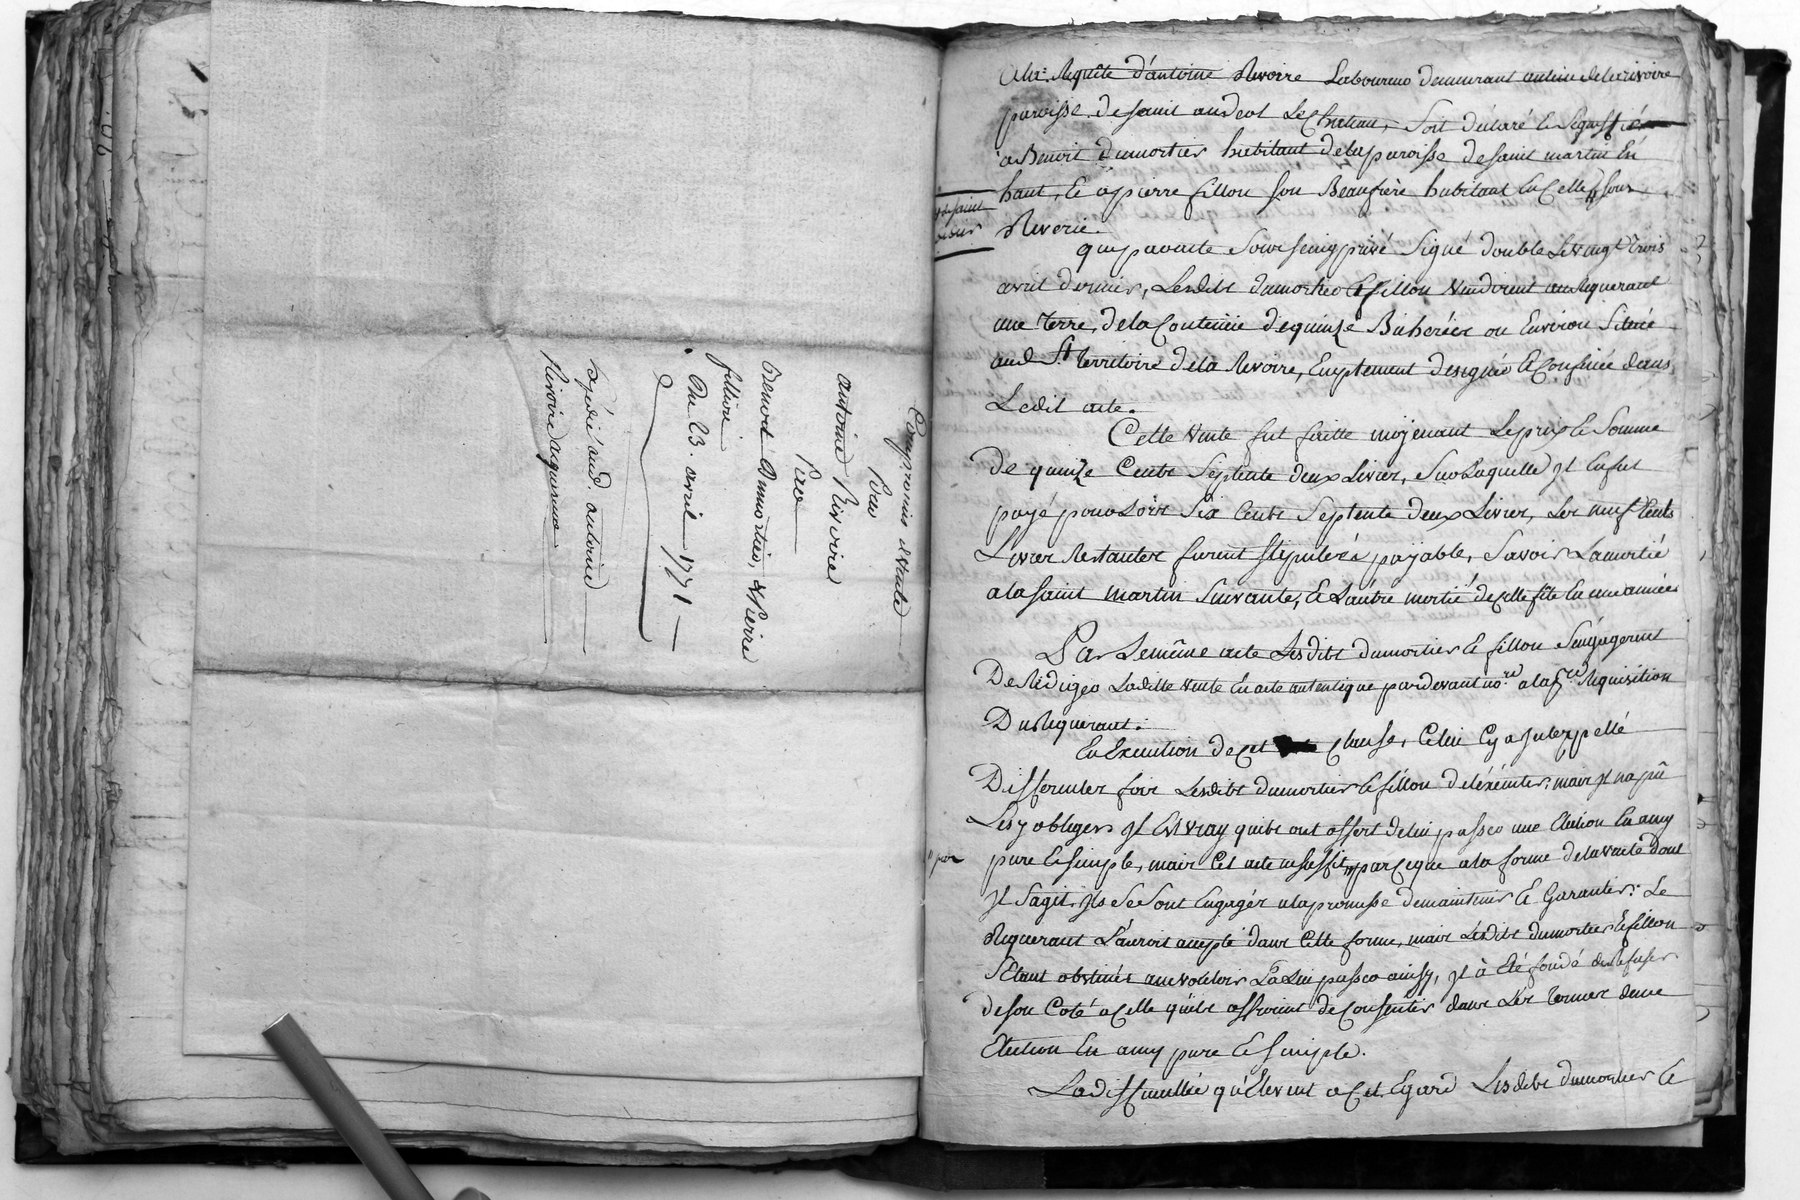 Compromis & vente
Pour
antoine Rivoire
Pere
Benoit dumortier, & Pierre
fillion
Du 23. avril 1771
Expedié aud. antoine
Rivoire requerant
Ala Requête d'antoine Rivoire Laboureur demeurant au lieu dela rivoire
paroisse de saint andeol Le Chateau, Soit déclaré & Signifié
a Benoit dumortier habitant dela paroisse de saint martin En
haut, & a pierre fillon son Beaufrère habitant En Celle sous
de saint
Riverie.
que par acte Sous seing privé Signé double Le vingt trois
avril dernier, Lesdits dumortier & fillon vendirent au Requerant
une terre, dela Contenüe de quinze Bicherées ou Environ Située
aud. territoire dela Rivoire, Emplement designée & Confinée dans
Ledit acte.
Cette vente fut faitte moyenant Le prix & Somme
De quinze Cents Septente deux Livres, Sur Laquelle jl En fut
payé pour Lors Six Cents Septente deux Livres, Les neuf Cents
Livres Restantes furent stipulées payable, Savoir La moitié
a la saint martin Suivante, & L'autre moitié de Celle fête En une année
Par Le même acte Lesdits dumortier & fillon S'engagerent
De Rediger Laditte vente En acte autentique pardevant no.re a la p.re Requisition
Du Requerant.
En Execution de Cet clause, Celui Cy a jnterpellé
Differentes fois Lesdits dumortier & fillon de L'éxécuter; mais jl n'a pû
Les y obliger; jl Est vray qu'ils ont offert de lui passer une Election En amy
pure & simple, mais Cet acte ne suffit, parce que a la forme dela vente dont
jl S'agit, jls Se Sont Engagés a la promesse de maintenir & Garantir: Le
Requerant L'auroit accepté dans Cette forme, mais Lesdits dumortier & fillon
S'Etant obstinés a ne vouloir La Lui passer ainsy, jl à Eté fondé de Refuser
de son Coté a Celle qu'ils offroient de Consentir dans Les termes d'une
Election En amy pure & Simple.
La difficultée qu'Elevent a Cet Egard Lesdits dumortier &